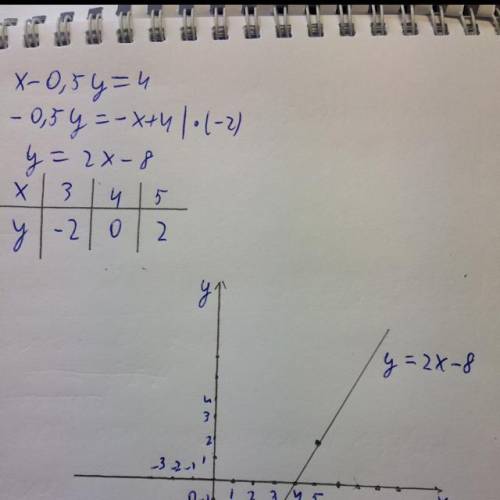 x-0,5y=4
-0,5y=-x+4|·(-2)
y=2x-8
x | 3 | 4 | 5
y | -2 | 0 | 2
y
y=2x-8
4
3
2
1
-3 -2 -1
0 1 2 3 4 5